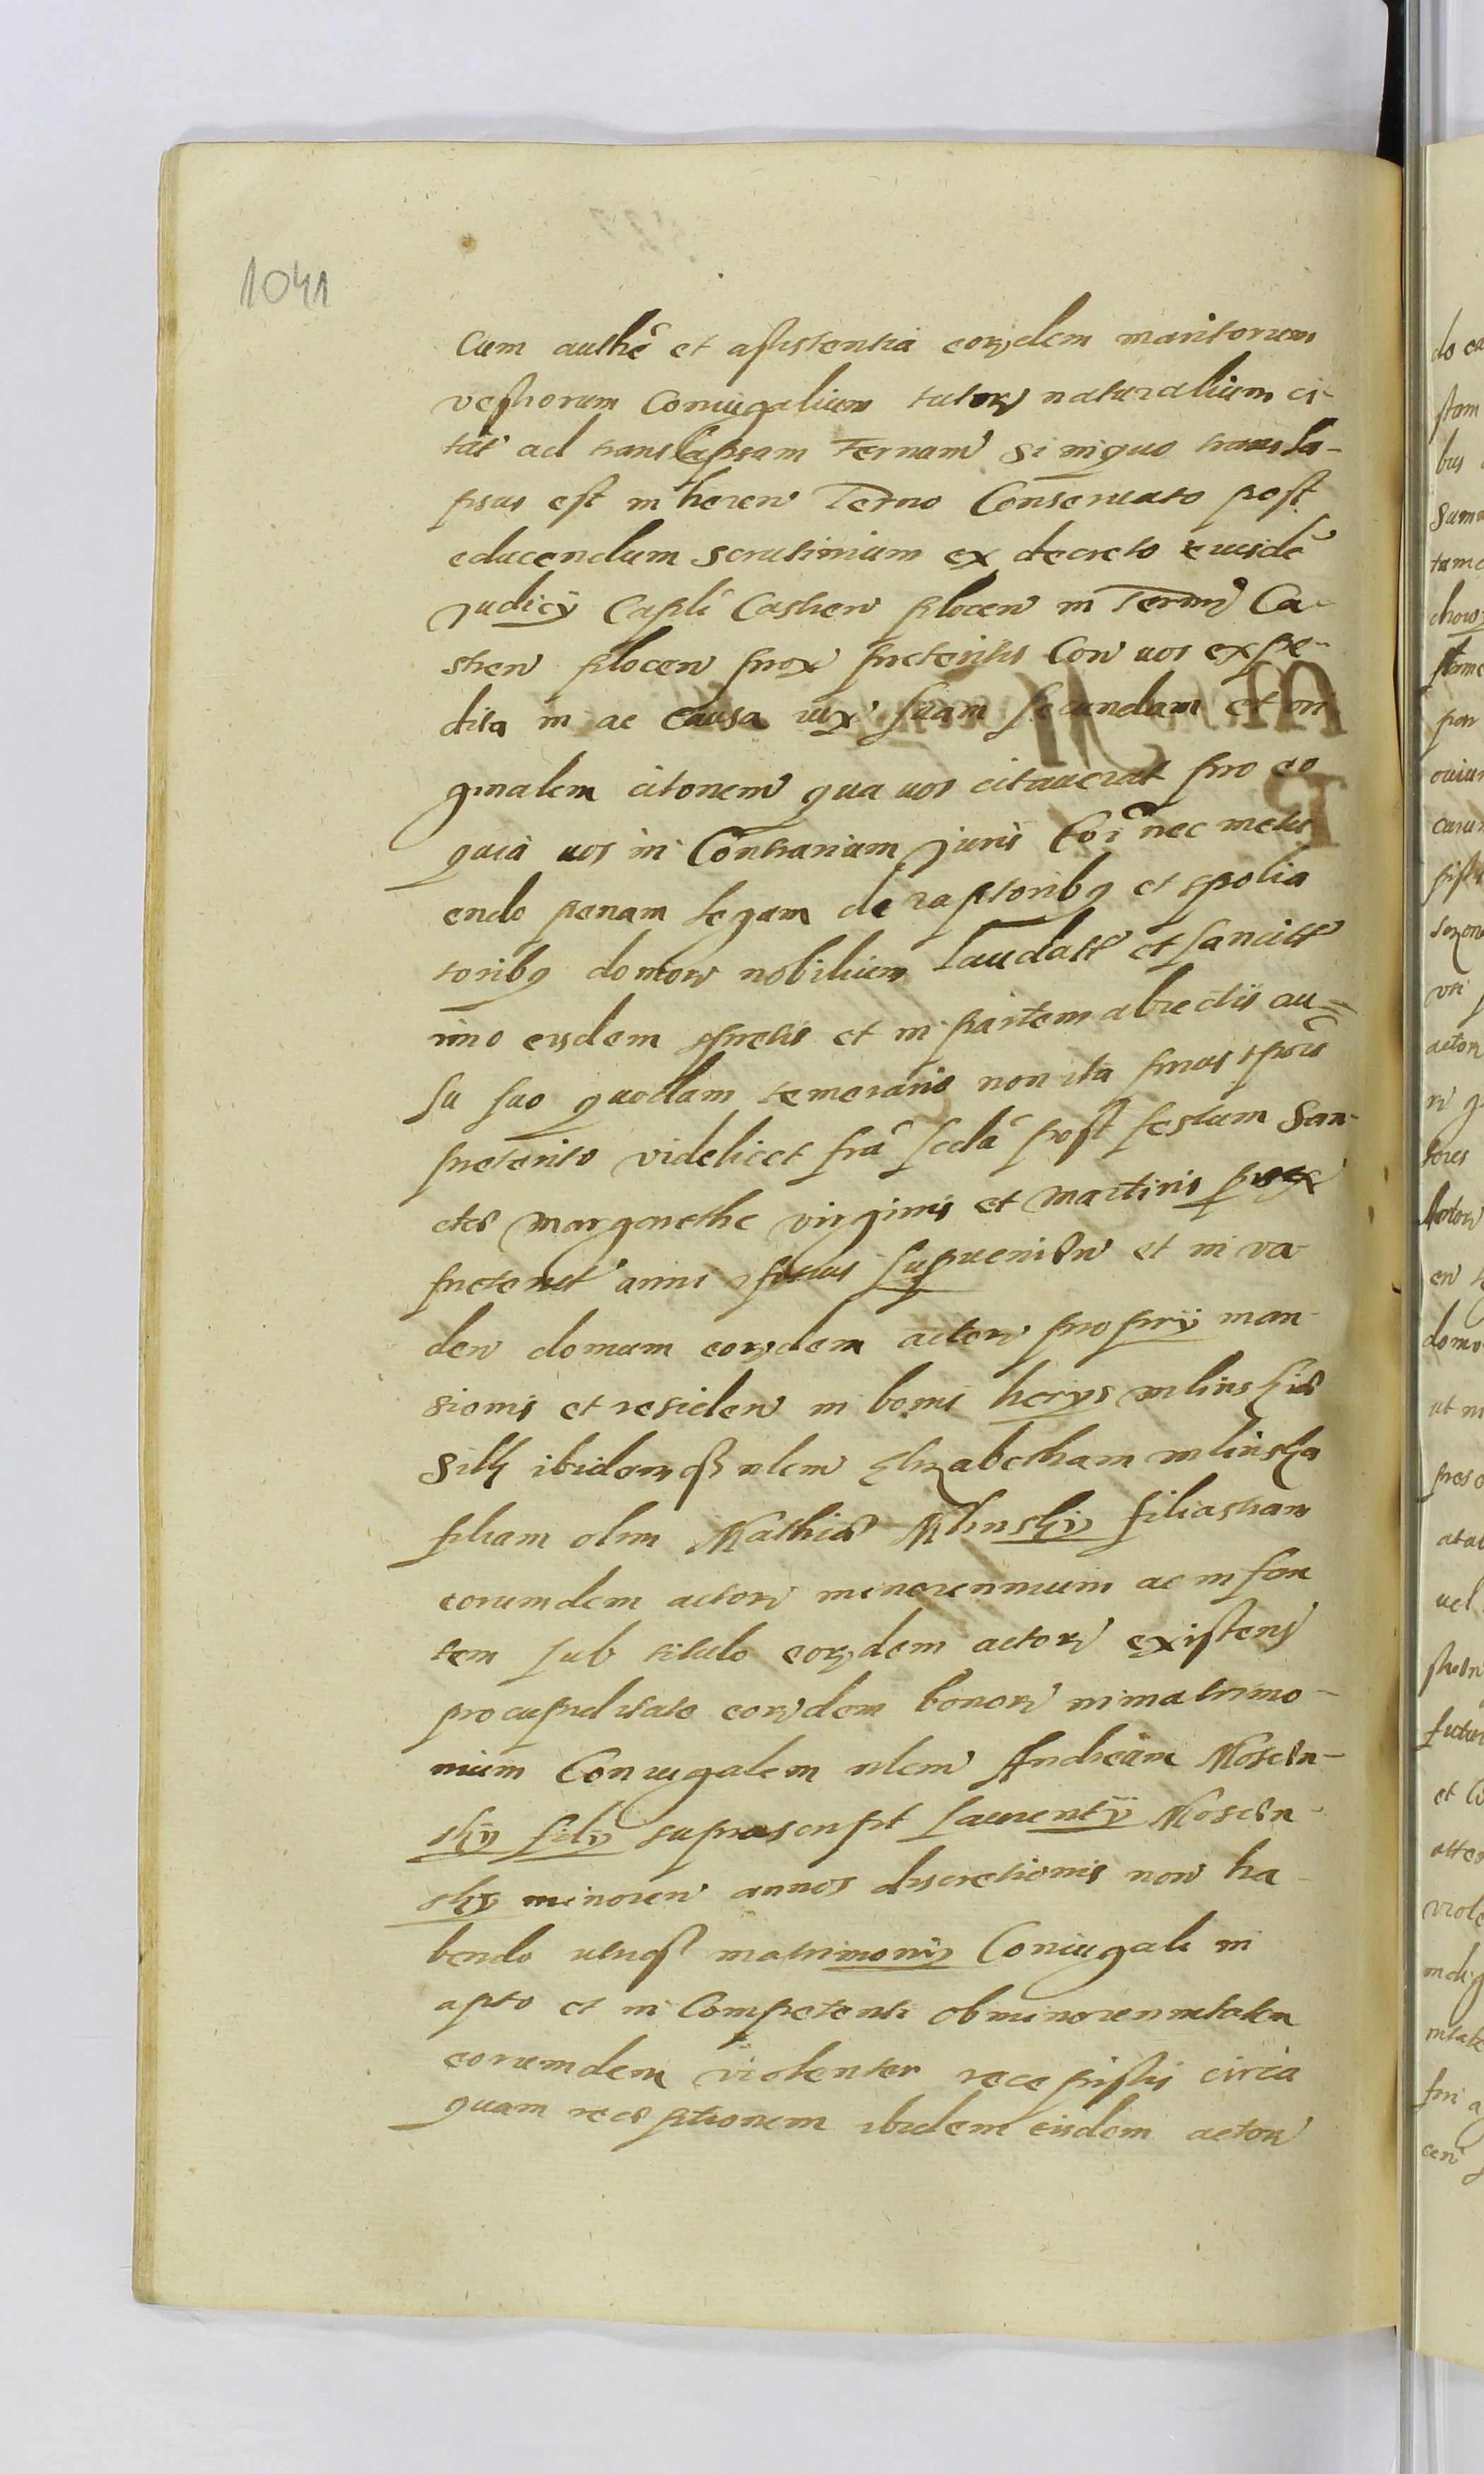 1041
Cum authē et assistentia eorundem maritorum
vestrorum Coniugalium tutorum naturalium ci-
tat ad translapsam Ternam si in quo transla-
psus est in heren Termo Conseruato post
educendum scrutinium ex decreto eiusdē
Judicÿ Capli Castren plocen in Termi Ca-
stren plocen prox preteritis Con uos expe-
dita in ac causa iux suam secundam et ori
ginalem citonem qua uos citauerat pro eo
quia uos in Contrarium Juris Cōi nec metu
endo penam legum de raptoribq et spolia
toribq domorum nobilium Laudatt et sancitt
imo eisdem spretis et in partem abiectis au=
su suo quodam temerario non ita prius tpris
preterito videlicet fra scda post festum San-
ctae Margarethe virginis et martiris prox
preterit anni psimus supuenien et in va
den domum eorundem actorum propriÿ man-
sionis et residen in bonis herÿs mlinskie
Sitt ibidemqz nlem Elizabetham mlinska
filiam olim Mathiae Mlinskÿ filiastram
eorumdem actorum minorennium ac infan
tem sub titulo eorundem actorum existens
pro cupiditate eorundem bonorum in matrimo-
nium Coniugalem nlem Andream Moscin-
skÿ filÿ suprascript Laurentÿ Moscin-
skÿ minoren annos discretionis non ha-
bendo utrqz matrimonÿ Coniugali in
apto et in Competenti ob minorennitatem
eorumdem violenter recepistis circa
quam receptionem ibidem eisdem actorum